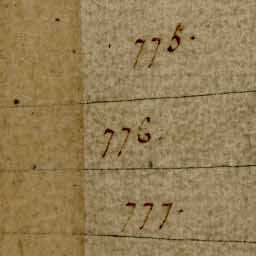 775.
776.
777.